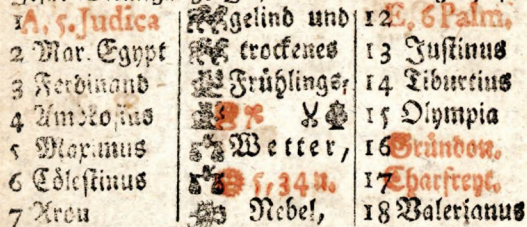 1 A. 5. Judica gelind und 12 E. 6 Palm.
2 Mar. Egypt trockenes 13 Justinus
3 Ferdinand Frühlings- 14 Tiburtius
4 Ambrosius 15 Olympia
5 Maximus Wetter, 16 Gründon.
6 Cölestinus 5, 34 n. 17 Charfreyt.
7 Aron Nebel, 18 Valerianus